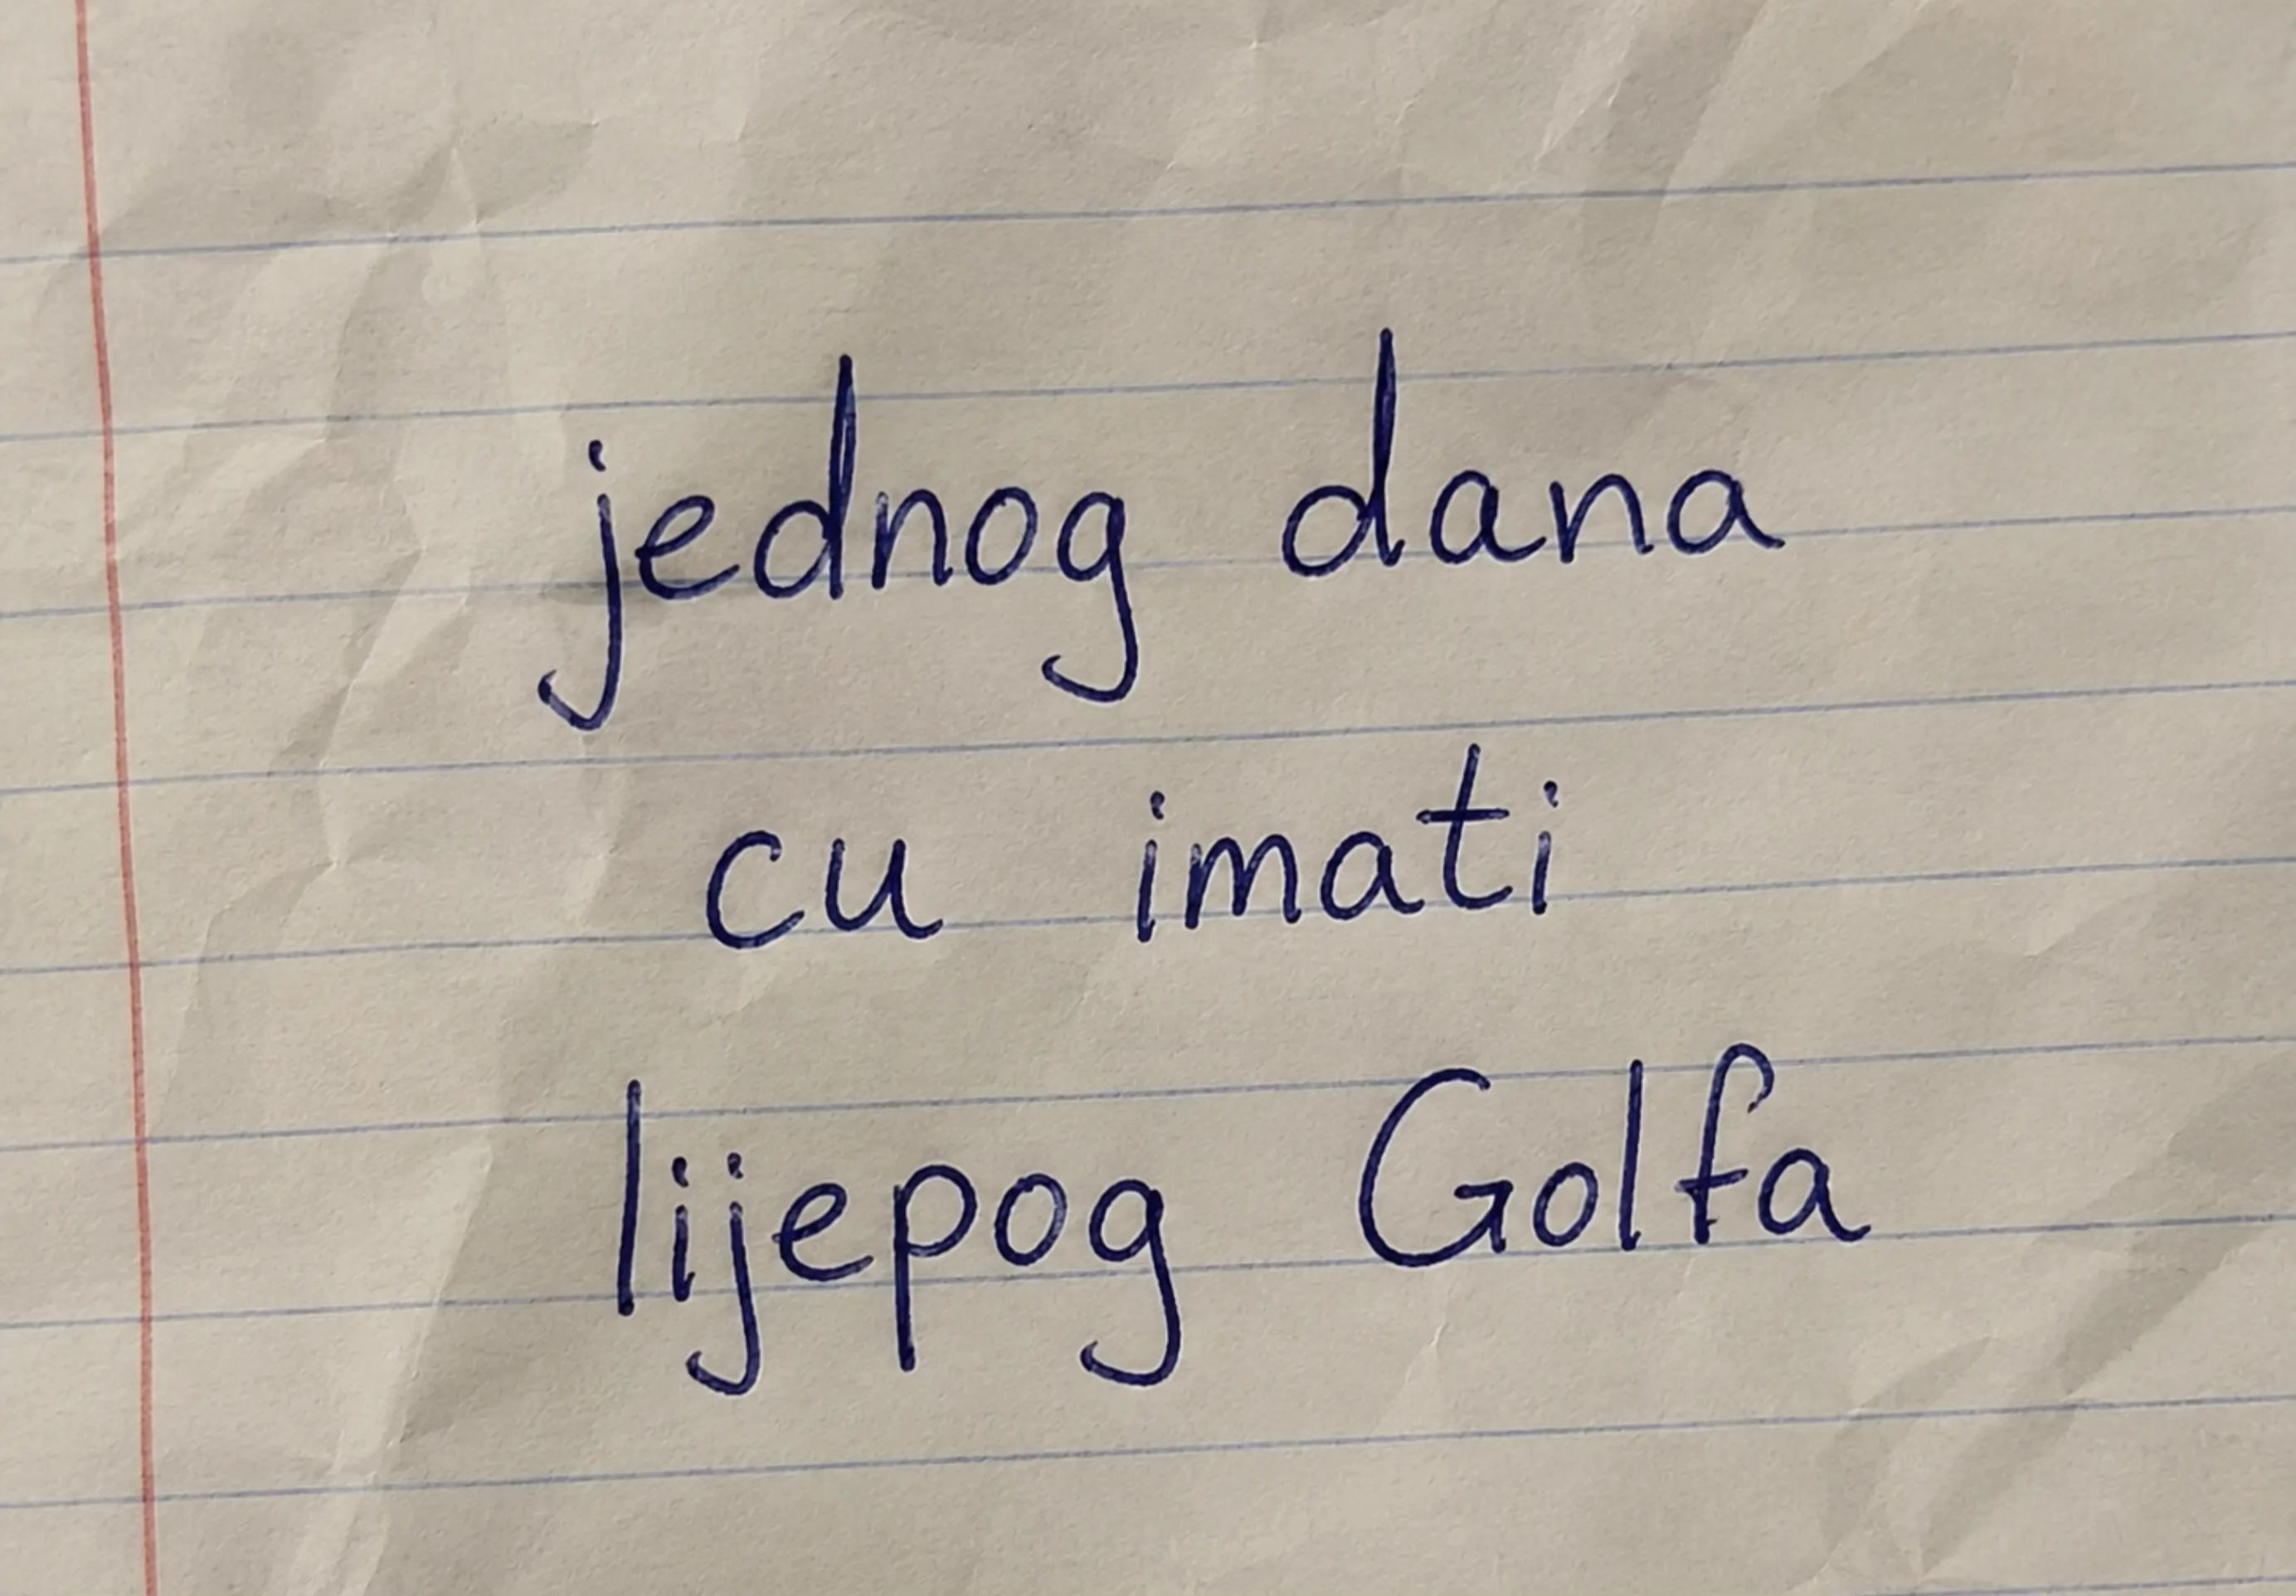 jednog dana
cu imati
lijepog Golfa